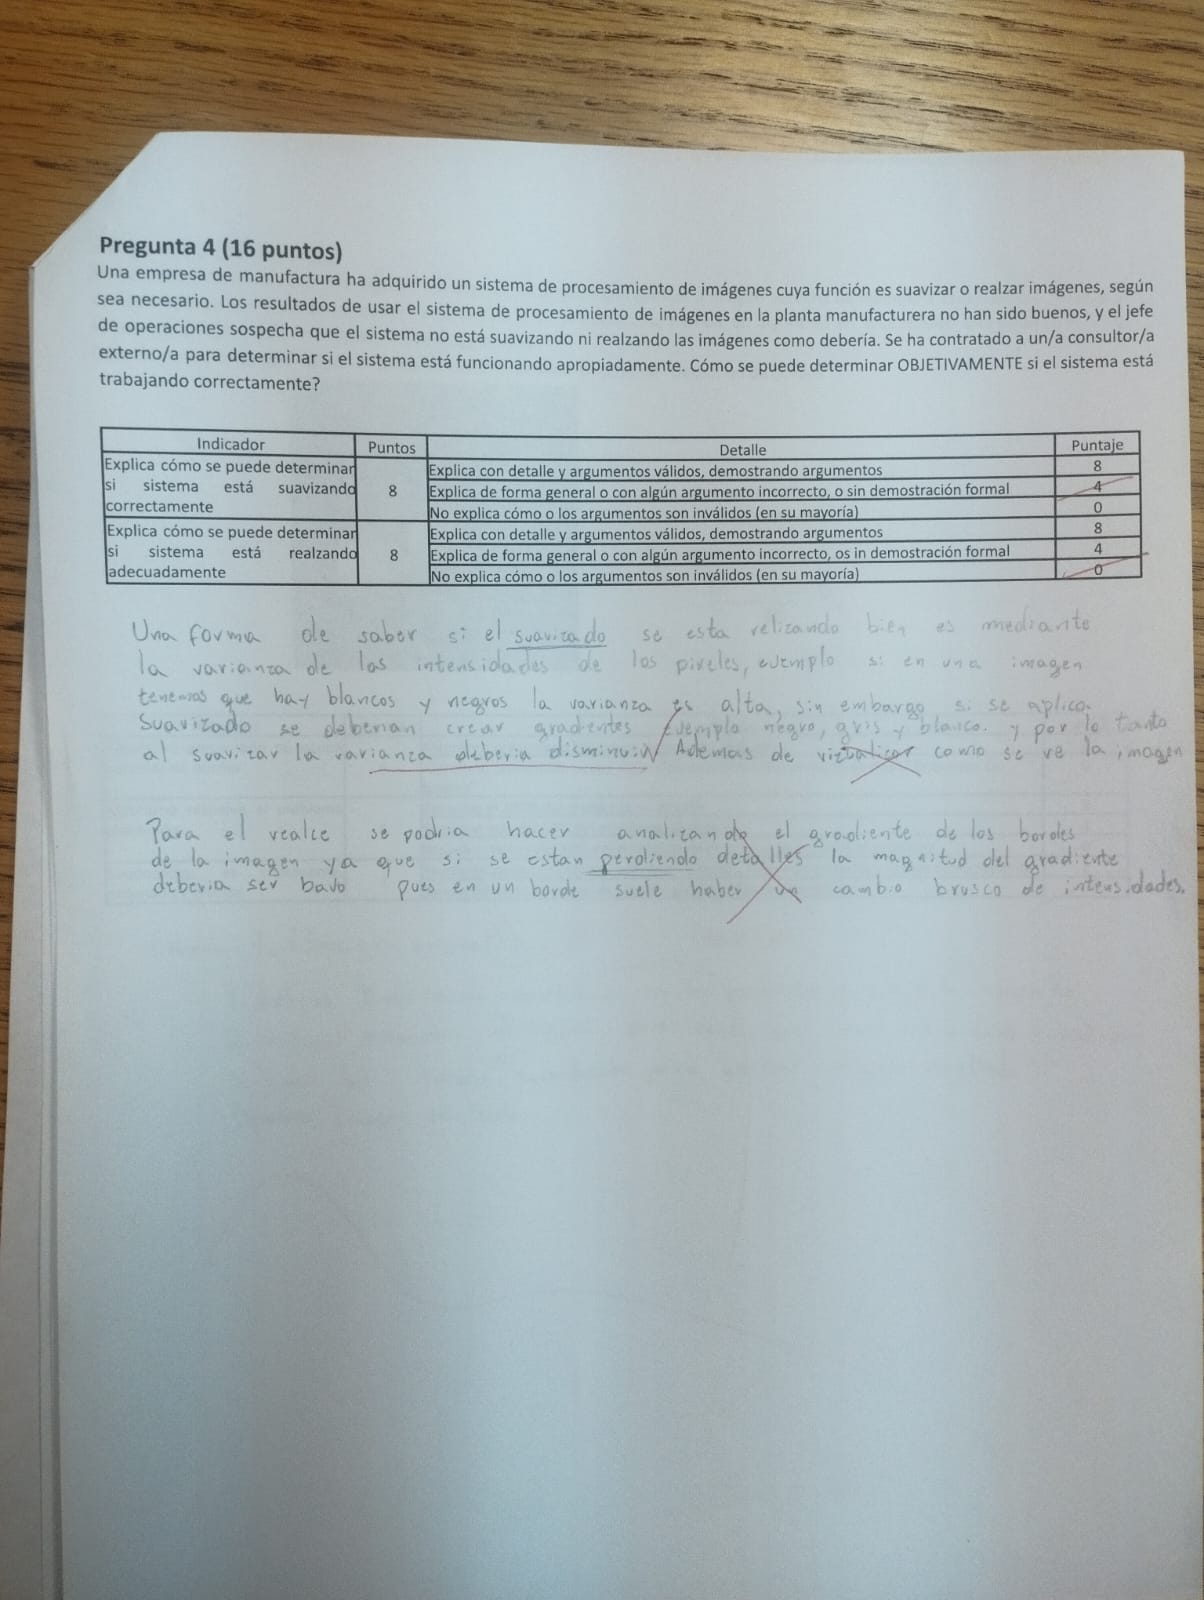 Pregunta 4 (16 puntos)
Una empresa de manufactura ha adquirido un sistema de procesamiento de imágenes cuya función es suavizar o realzar imágenes, según
sea necesario. Los resultados de usar el sistema de procesamiento de imágenes en la planta manufacturera no han sido buenos, y el jefe
de operaciones sospecha que el sistema no está suavizando ni realzando las imágenes como debería. Se ha contratado a un/a consultor/a
externo/a para determinar si el sistema está funcionando apropiadamente. Cómo se puede determinar OBJETIVAMENTE si el sistema está
trabajando correctamente?
Indicador Puntos Detalle Puntaje
Explica cómo se puede determinar
si sistema está suavizando
correctamente
8
Explica con detalle y argumentos válidos, demostrando argumentos 8
Explica de forma general o con algún argumento incorrecto, o sin demostración formal 4
No explica cómo o los argumentos son inválidos (en su mayoría) 0
Explica cómo se puede determinar
si sistema está realzando
adecuadamente
8
Explica con detalle y argumentos válidos, demostrando argumentos 8
Explica de forma general o con algún argumento incorrecto, os in demostración formal 4
No explica cómo o los argumentos son inválidos (en su mayoría) 0
Una forma de saber si el suavizado se esta relizando bien es mediante
la varianza de las intensidades de los pixeles, ejemplo si en una imagen
tenemos que hay blancos y negros la varianza es alta, sin embargo si se aplica
suavizado se deberian crear gradientes ejemplo negro, gris y blanco. y por lo tanto
al suavizar la varianza deberia disminuir Ademas de como se ve la imagen
Para el realce se podria hacer analizando el gradiente de los bordes
de la imagen ya que si se estan perdiendo detalles la magnitud del gradiente
deberia ser bajo pues en un borde suele haber un cambio brusco de intensidades.